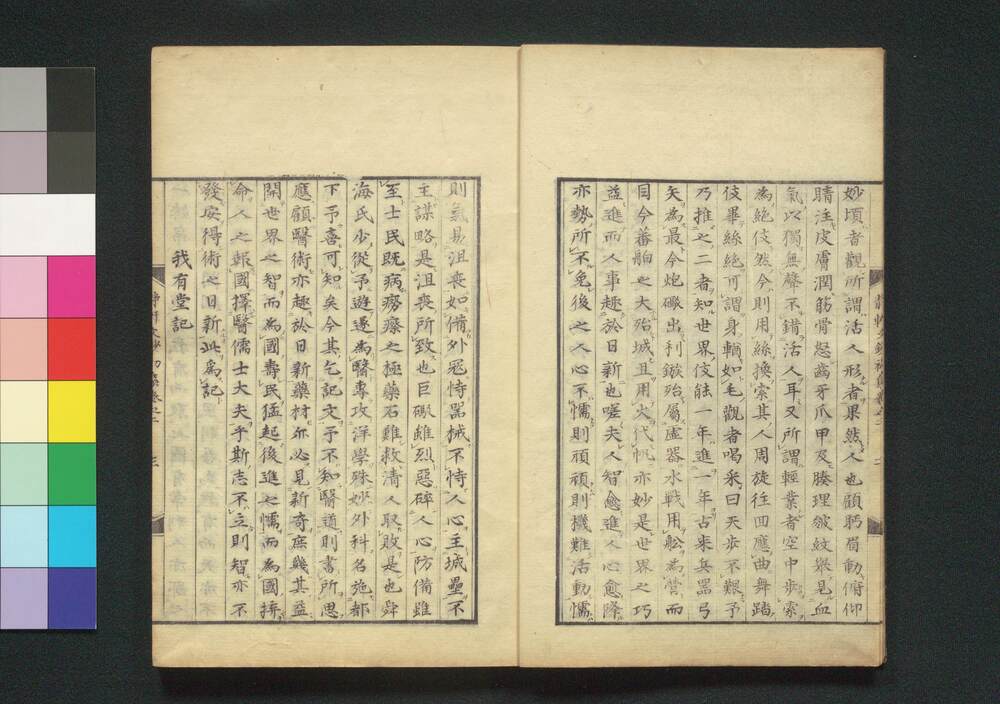 妙頃者觀所謂活人形者果然人也顧眄眉動俯仰
睛注皮膚潤筋骨怒齒牙爪甲及腠理皴紋衆見血
氣以獨無聲不錯活人耳又所謂輕業者空中步索
為絶伎然今則用絲換索其人周旋徃回應曲舞踏
伎畢絲絶可謂身輶如毛觀者喝采曰天步不艱予
乃推之二者知世界伎能一年進一年古来兵器弓
矢為最今炮礮出利鏃殆屬虛器水戰用船為營而
目今蕃舶之大殆城且用火代帆亦妙是世界之巧
益進而人事趣於日新也嗟夫人智愈進人心愈降
亦勢所不免後之人心不懦則頑頑則機難活動懦
則氣易沮喪如備外冦恃器械不恃人心主城壘不
主謀略是沮喪所致也巨礮雖烈惡碎人心防備雖
至士民既病癆瘵之極藥石難救清人取敗是也舜
海氏少從予遊遂為醫專攻洋學殊妙外科名施都
下予喜可知矣今其乞記文予不知醫道則書所思
應顧醫術亦趣於日新藥材亦必見新奇庶幾其益
開世界之智而為國壽民猛起後進之懦而為國擠
命人之報國擇醫儒士大夫乎斯志不立則智亦不
發安得術之日新此為記
我有堂記